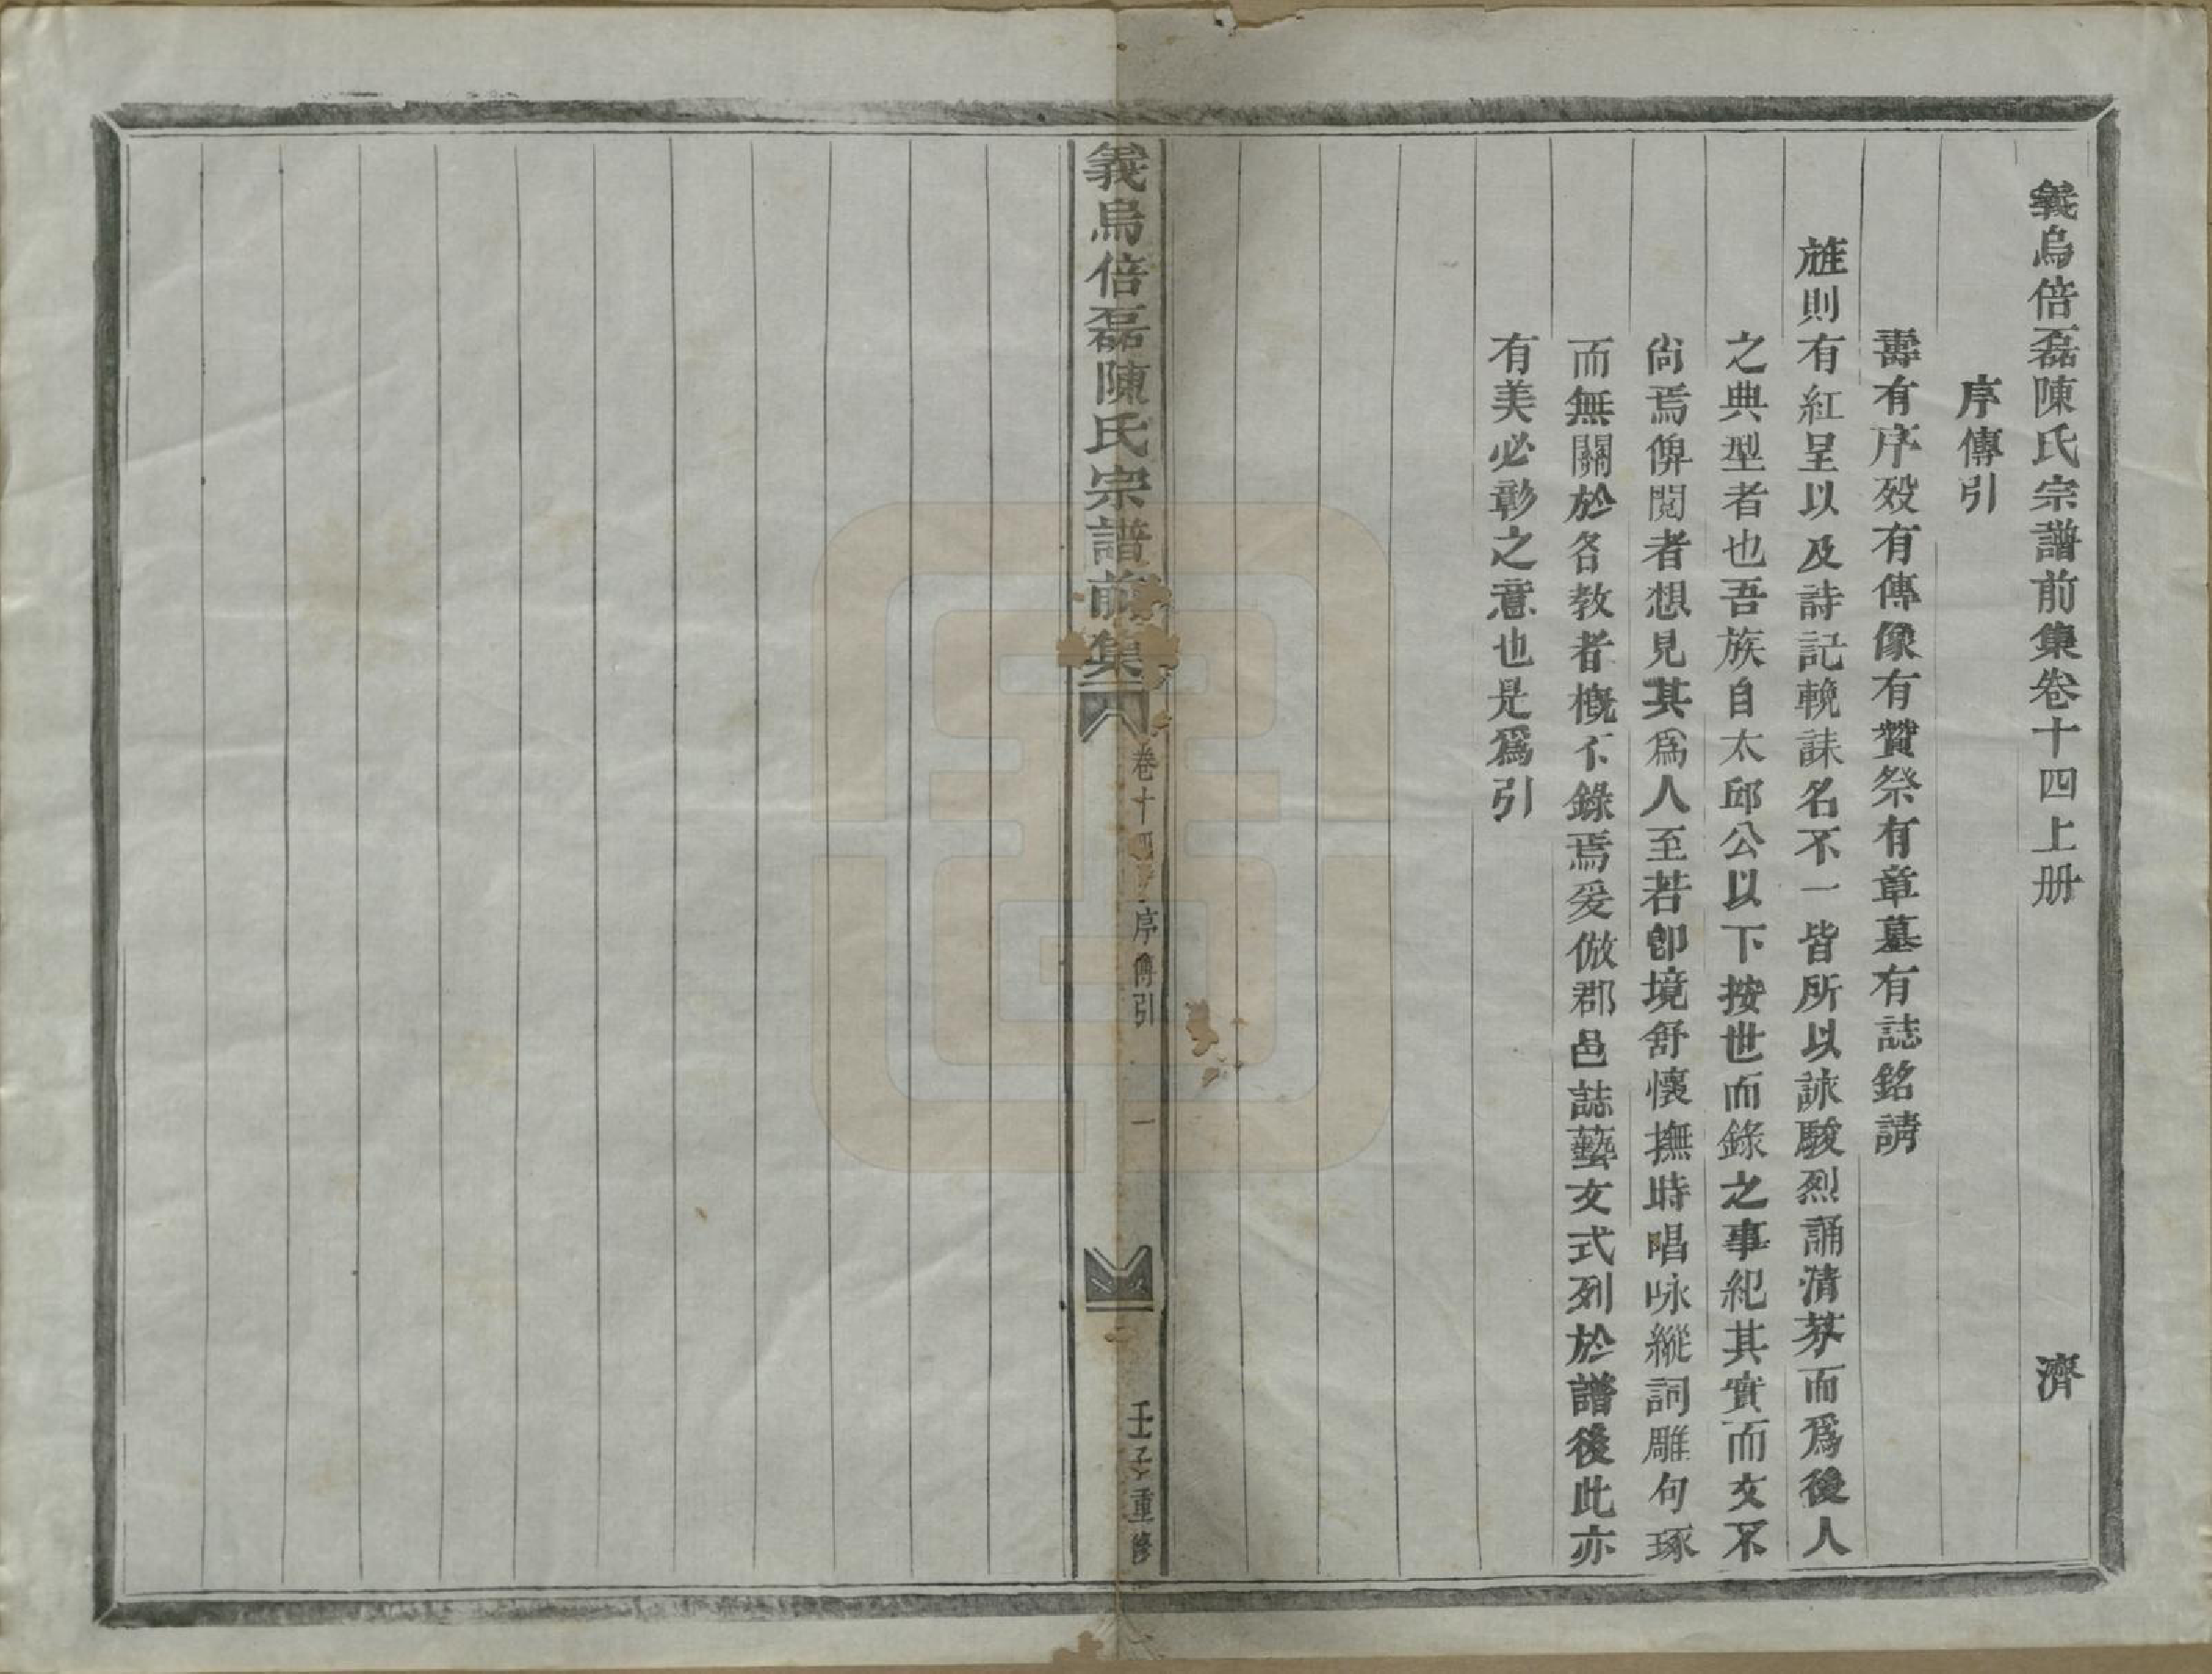 義烏倍磊陳氏宗譜前集卷十四上册 濟
序傳引
壽有序歿有傳像有贊祭有章墓有誌銘請
旌則有紅呈以及詩記輓誄名不一皆所以詠駿烈誦清芬而爲後人
之典型者也吾族自太邱公以下按世而錄之事紀其實而文不
尚焉俾閱者想見其爲人至若卽境舒懷撫時唱咏縱詞雕句琢
而無關於名教者槪不錄焉爰倣郡邑誌藝文式列於譜後此亦
有美必彰之意也是爲引
義烏倍磊陳氏宗譜前集
卷十四 序傳引 一
壬子重修